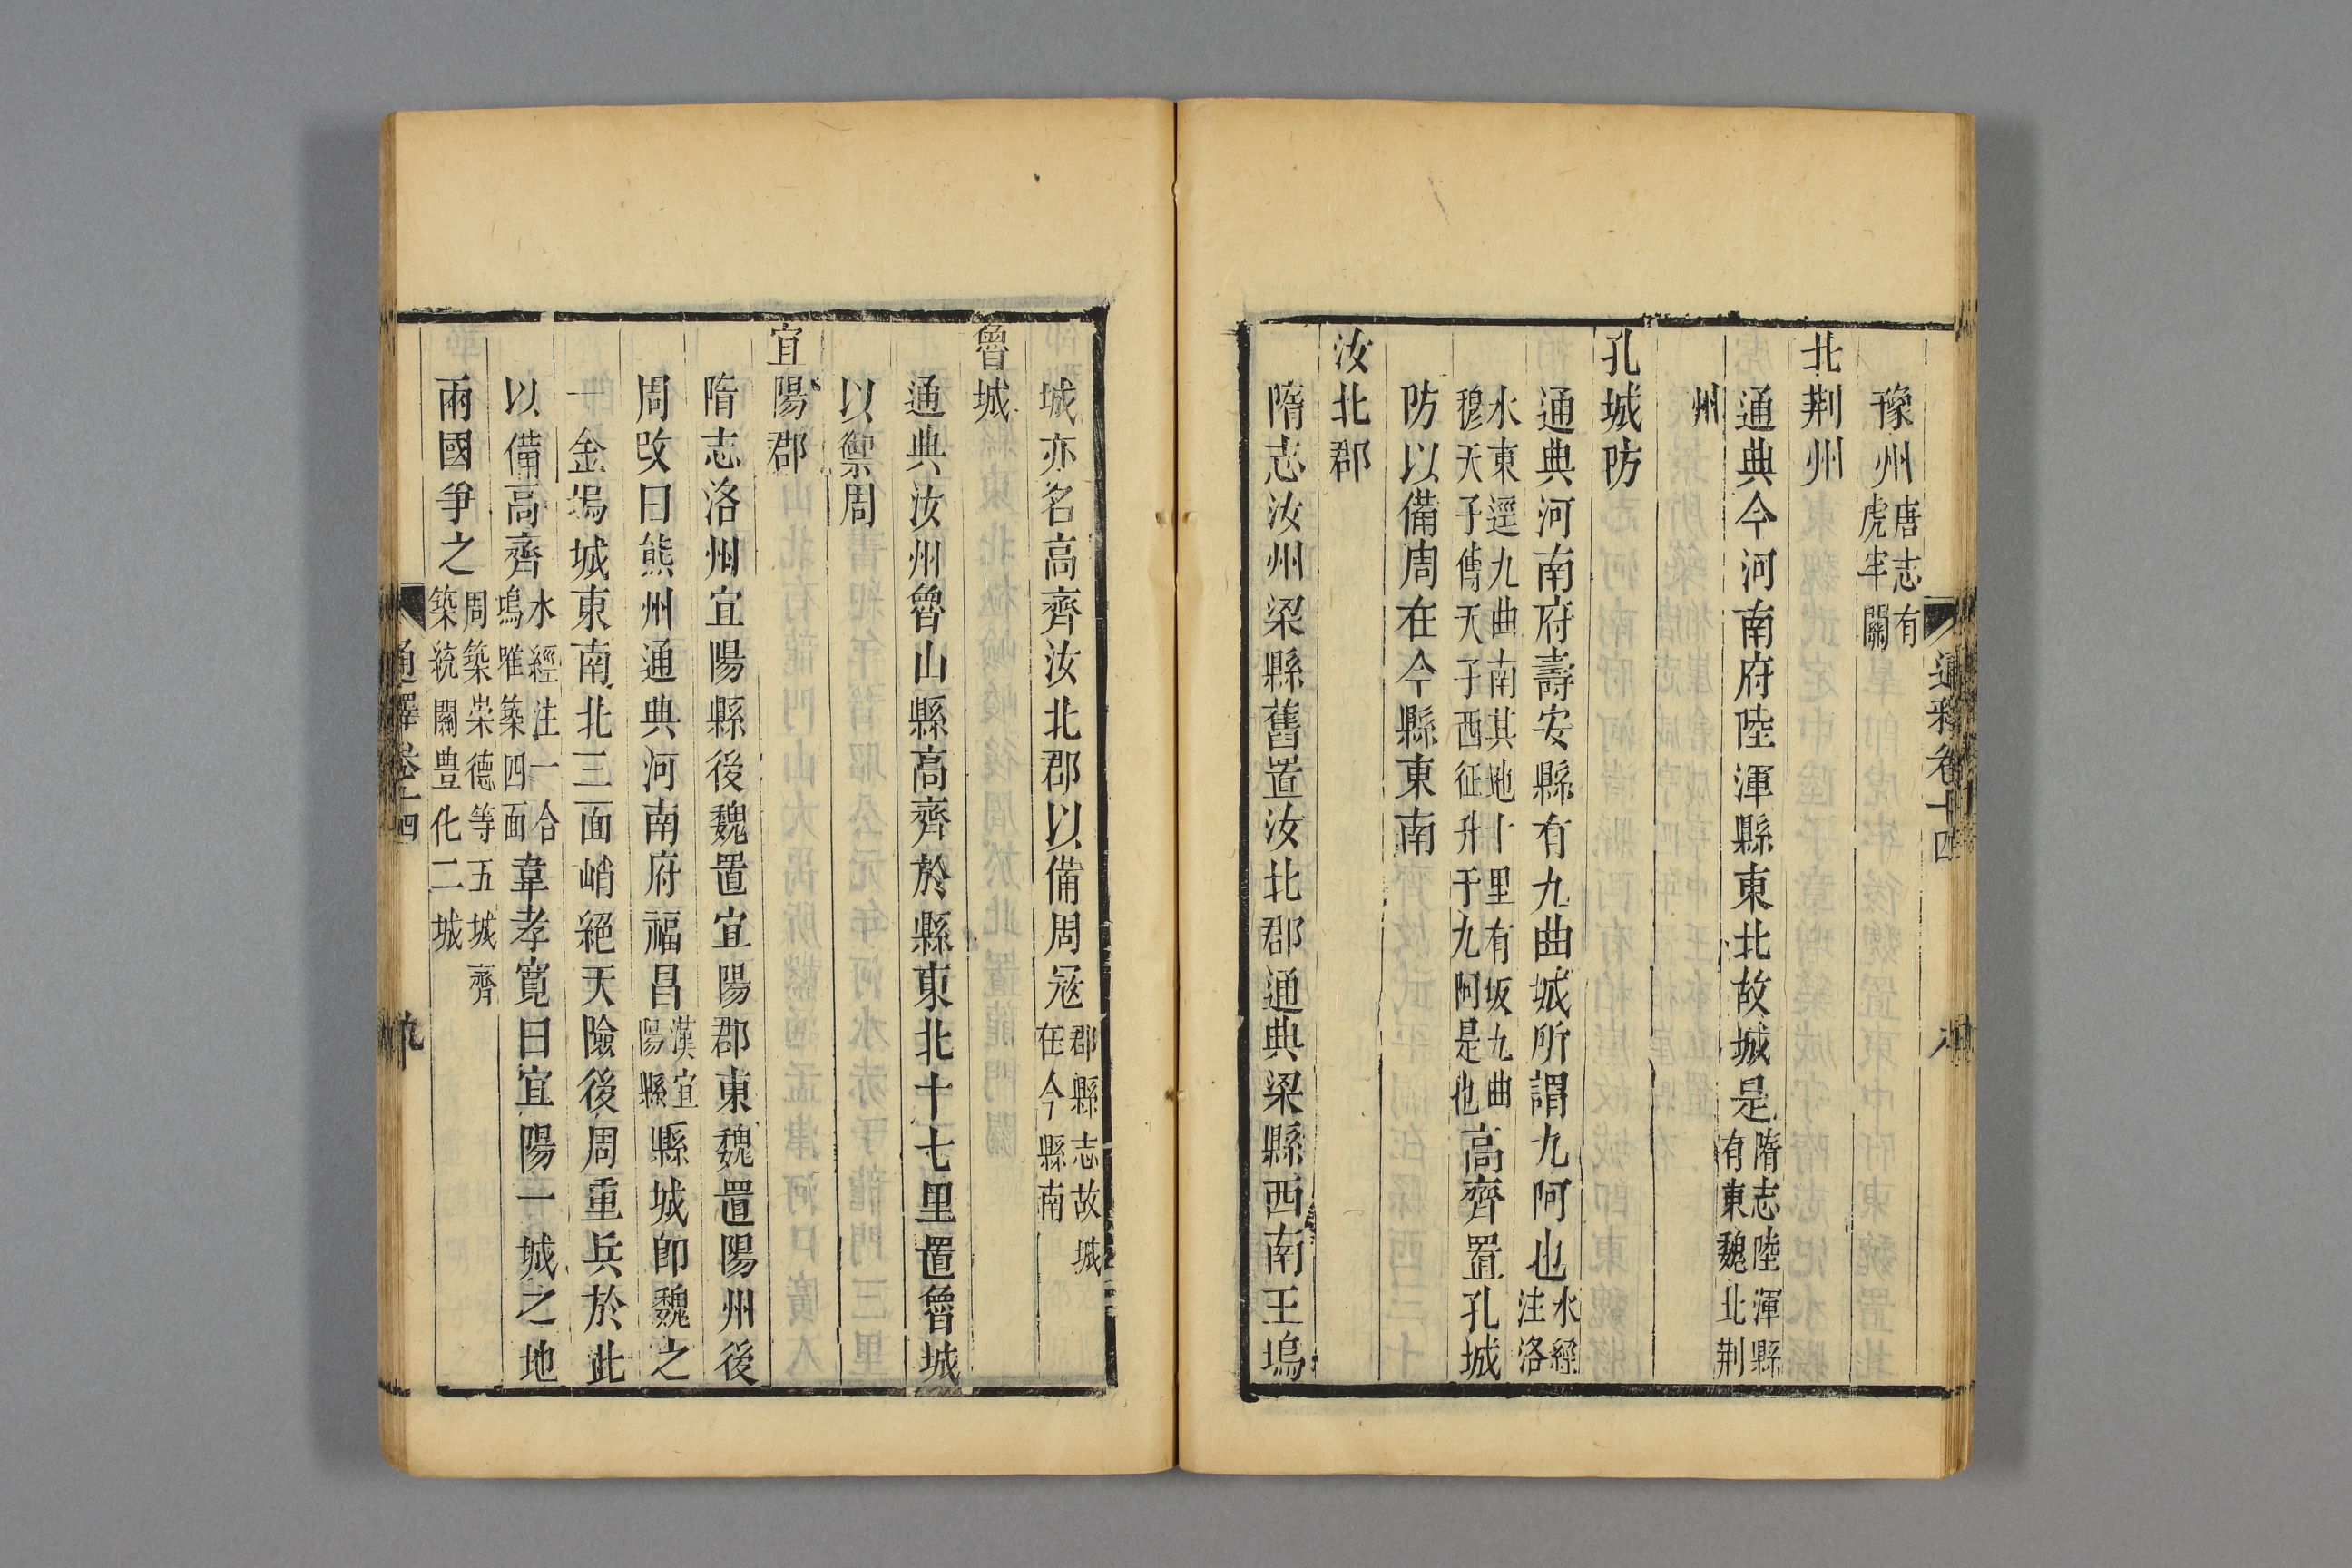 豫州唐志有虎牢關
北荆州
通典今河南府陸渾縣東北故城是隋志陸渾縣有東魏北荆
州
孔城防
通典河南府壽安縣有九曲城所謂九阿也水經注洛
水東逕九曲南其地十里有坂九曲穆天子傳天子西征升于九阿是也高齊置孔城
防以備周在今縣東南
汝北郡
隋志汝州梁縣舊置汝北郡通典梁縣西南王塢
城亦名高齊汝北郡以備周冦郡縣志故城在今縣南
魯城
通典汝州魯山縣高齊於縣東北十七里置魯城
以禦周
宜陽郡
隋志洛州宜陽縣後魏置宜陽郡東魏置陽州後
周改曰熊州通典河南府福昌漢宜陽縣縣城卽魏之
一金塢城東南北三面峭絕天險後周重兵於此
以備高齊水經注一合塢唯築四面韋孝寬曰宜陽一城之地
兩國爭之周築崇德等五城齊築統關豊化二城
通釋卷十四
九